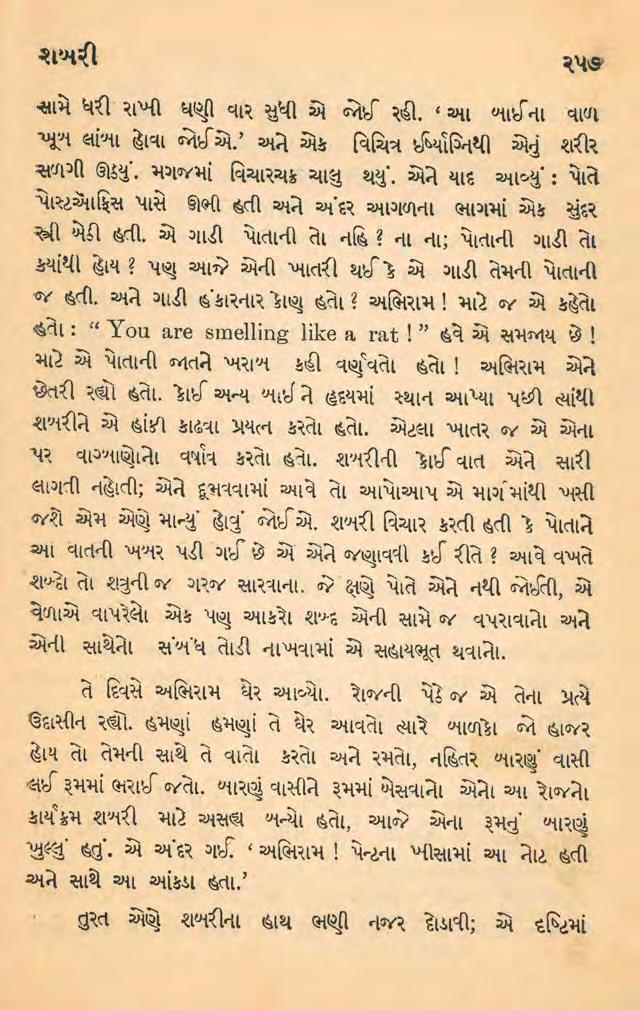 શબરી
૨૫૭
સામે ધરી રાખી ઘણી વાર સુધી એ જોઈ રહી. ‘ આ બાઈના વાળ
ખૂબ લાંબા હોવા જોઈએ.’ અને એક વિચિત્ર ઈર્ષ્યાગ્નિથી એનું શરીર
સળગી ઊઠયું. મગજમાં વિચારચક્ર ચાલુ થયું. એને યાદ આવ્યું : પોતે
પોસ્ટઑફિસ પાસે ઊભી હતી અને અંદર આગળના ભાગમાં એક સુંદર
સ્ત્રી બેઠી હતી. એ ગાડી પોતાની તો નહિ ? ના ના; પોતાની ગાડી તો
કયાંથી હોય ? પણ આજે એની ખાતરી થઈ કે એ ગાડી તેમની પોતાની
જ હતી. અને ગાડી હંકારનાર કોણ હતો ? અભિરામ ! માટે જ એ કહેતો
હતો : “ You are smelling like a rat ! ” હવે એ સમજાય છે !
માટે એ પોતાની જાતને ખરાબ કહી વર્ણવતો હતો ! અભિરામ એને
છેતરી રહ્યો હતો. કોઈ અન્ય બાઈને હૃદયમાં સ્થાન આપ્યા પછી ત્યાંથી
શબરીને એ હાંકી કાઢવા પ્રયત્ન કરતો હતો. એટલા ખાતર જ એ એના
પર વાગ્બાણોનો વર્ષાવ કરતો હતો. શબરીની કોઈ વાત એને સારી
લાગતી નહોતી; એને દૂભવવામાં આવે તો આપોઆપ એ માર્ગમાંથી ખસી
જશે એમ એણે માન્યું હોવું જોઈએ. શબરી વિચાર કરતી હતી કે પોતાને
આ વાતની ખબર પડી ગઈ છે એ એને જણાવવી કઈ રીતે ? આવે વખતે
શબ્દો તો શત્રુની જ ગરજ સારવાના. જે ક્ષણે પોતે એને નથી જોઈતી, એ
વેળાએ વાપરેલો એક પણ આકરો શબ્દ એની સામે જ વપરાવાનો અને
એની સાથેનો સંબંધ તોડી નાખવામાં એ સહાયભૂત થવાનો.
તે દિવસે અભિરામ ઘેર આવ્યો. રોજની પેઠે જ એ તેના પ્રત્યે
ઉદાસીન રહ્યો. હમણાં હમણાં તે ઘેર આવતો ત્યારે બાળકો જો હાજર
હોય તો તેમની સાથે તે વાતો કરતો અને રમતો, નહિતર બારણું વાસી
લઈ રૂમમાં ભરાઈ જતો. બારણું વાસીને રૂમમાં બેસવાનો એનો આ રોજનો
કાર્યક્રમ શબરી માટે અસહ્ય બન્યો હતો, આજે એના રૂમનું બારણું
ખુલ્લું હતું. એ અંદર ગઈ. ‘ અભિરામ ! પેન્ટના ખીસામાં આ નોટ હતી
અને સાથે આ આંકડા હતા.’
તુરત એણે શબરીના હાથ ભણી નજર દોડાવી; એ દૃષ્ટિમાં